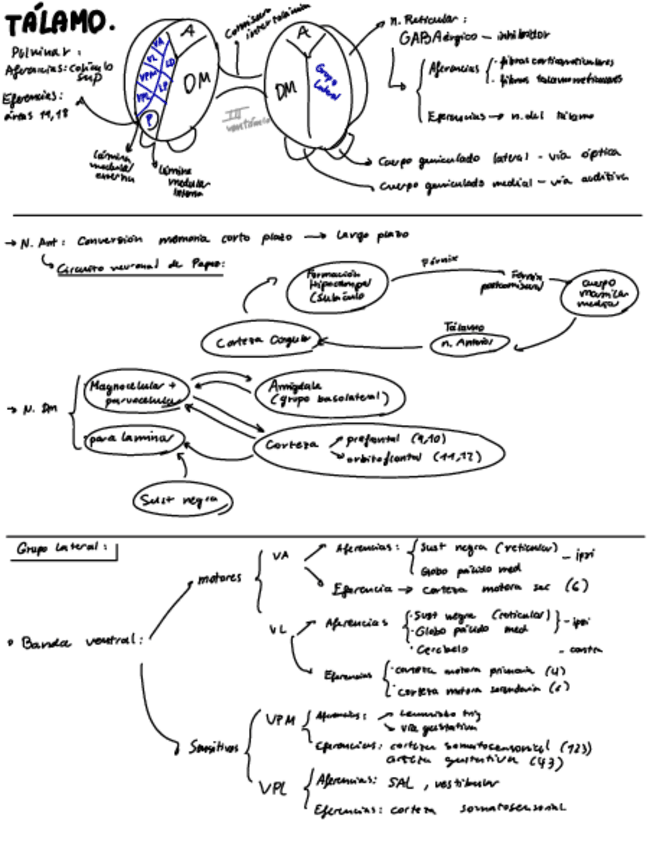 TÁLAMO.
Pulvinar:
Aferencias: colículo sup
Eferencias:
áreas 17, 18
VA
VL
VPM
VPL
LD
LP
P
A
DM
Comisura intertalámica
III ventrículo
Lámina medular externa
Lámina medular interna
A
DM
Grupo lateral
n. Reticular:
GABAérgico - inhibidor
Aferencias
· fibras corticoreticulares
· fibras talamoreticulares
Eferencias → n. del tálamo
Cuerpo geniculado lateral - vía óptica
Cuerpo geniculado medial - vía auditiva
→ N. Ant: Conversión memoria corto plazo → Largo plazo
Circuito neuronal de Papez:
Formación Hipocampal (Subículo
Fórnix
Fórnix postcomisural
cuerpo mamilar medial
Tálamo
n. Anterior
Corteza Cingular
→ N. DM
Magnocelular + parvocelular
Amígdala (grupo basolateral)
para laminar
Corteza
prefrontal (9,10)
orbitofrontal (11,12)
Sust negra
Grupo lateral:
· Banda ventral:
motores
VA
Aferencias:
Sust negra (reticular)
Globo pálido med
- ipsi
Eferencia → corteza motora sec (6)
VL
Aferencias
· Sust negra (reticular)
· Globo pálido med
- ipsi
· Cerebelo - contra
Eferencias
· corteza motora primaria (4)
· corteza motora secundaria (6)
Sensitivos
VPM
Aferencias:
Lemnisco trig
vía gustativa
Eferencias: corteza somatosensorial (123)
corteza gustativa (43)
VPL
Aferencias: SAL, vestibular
Eferencias: corteza somatosensorial